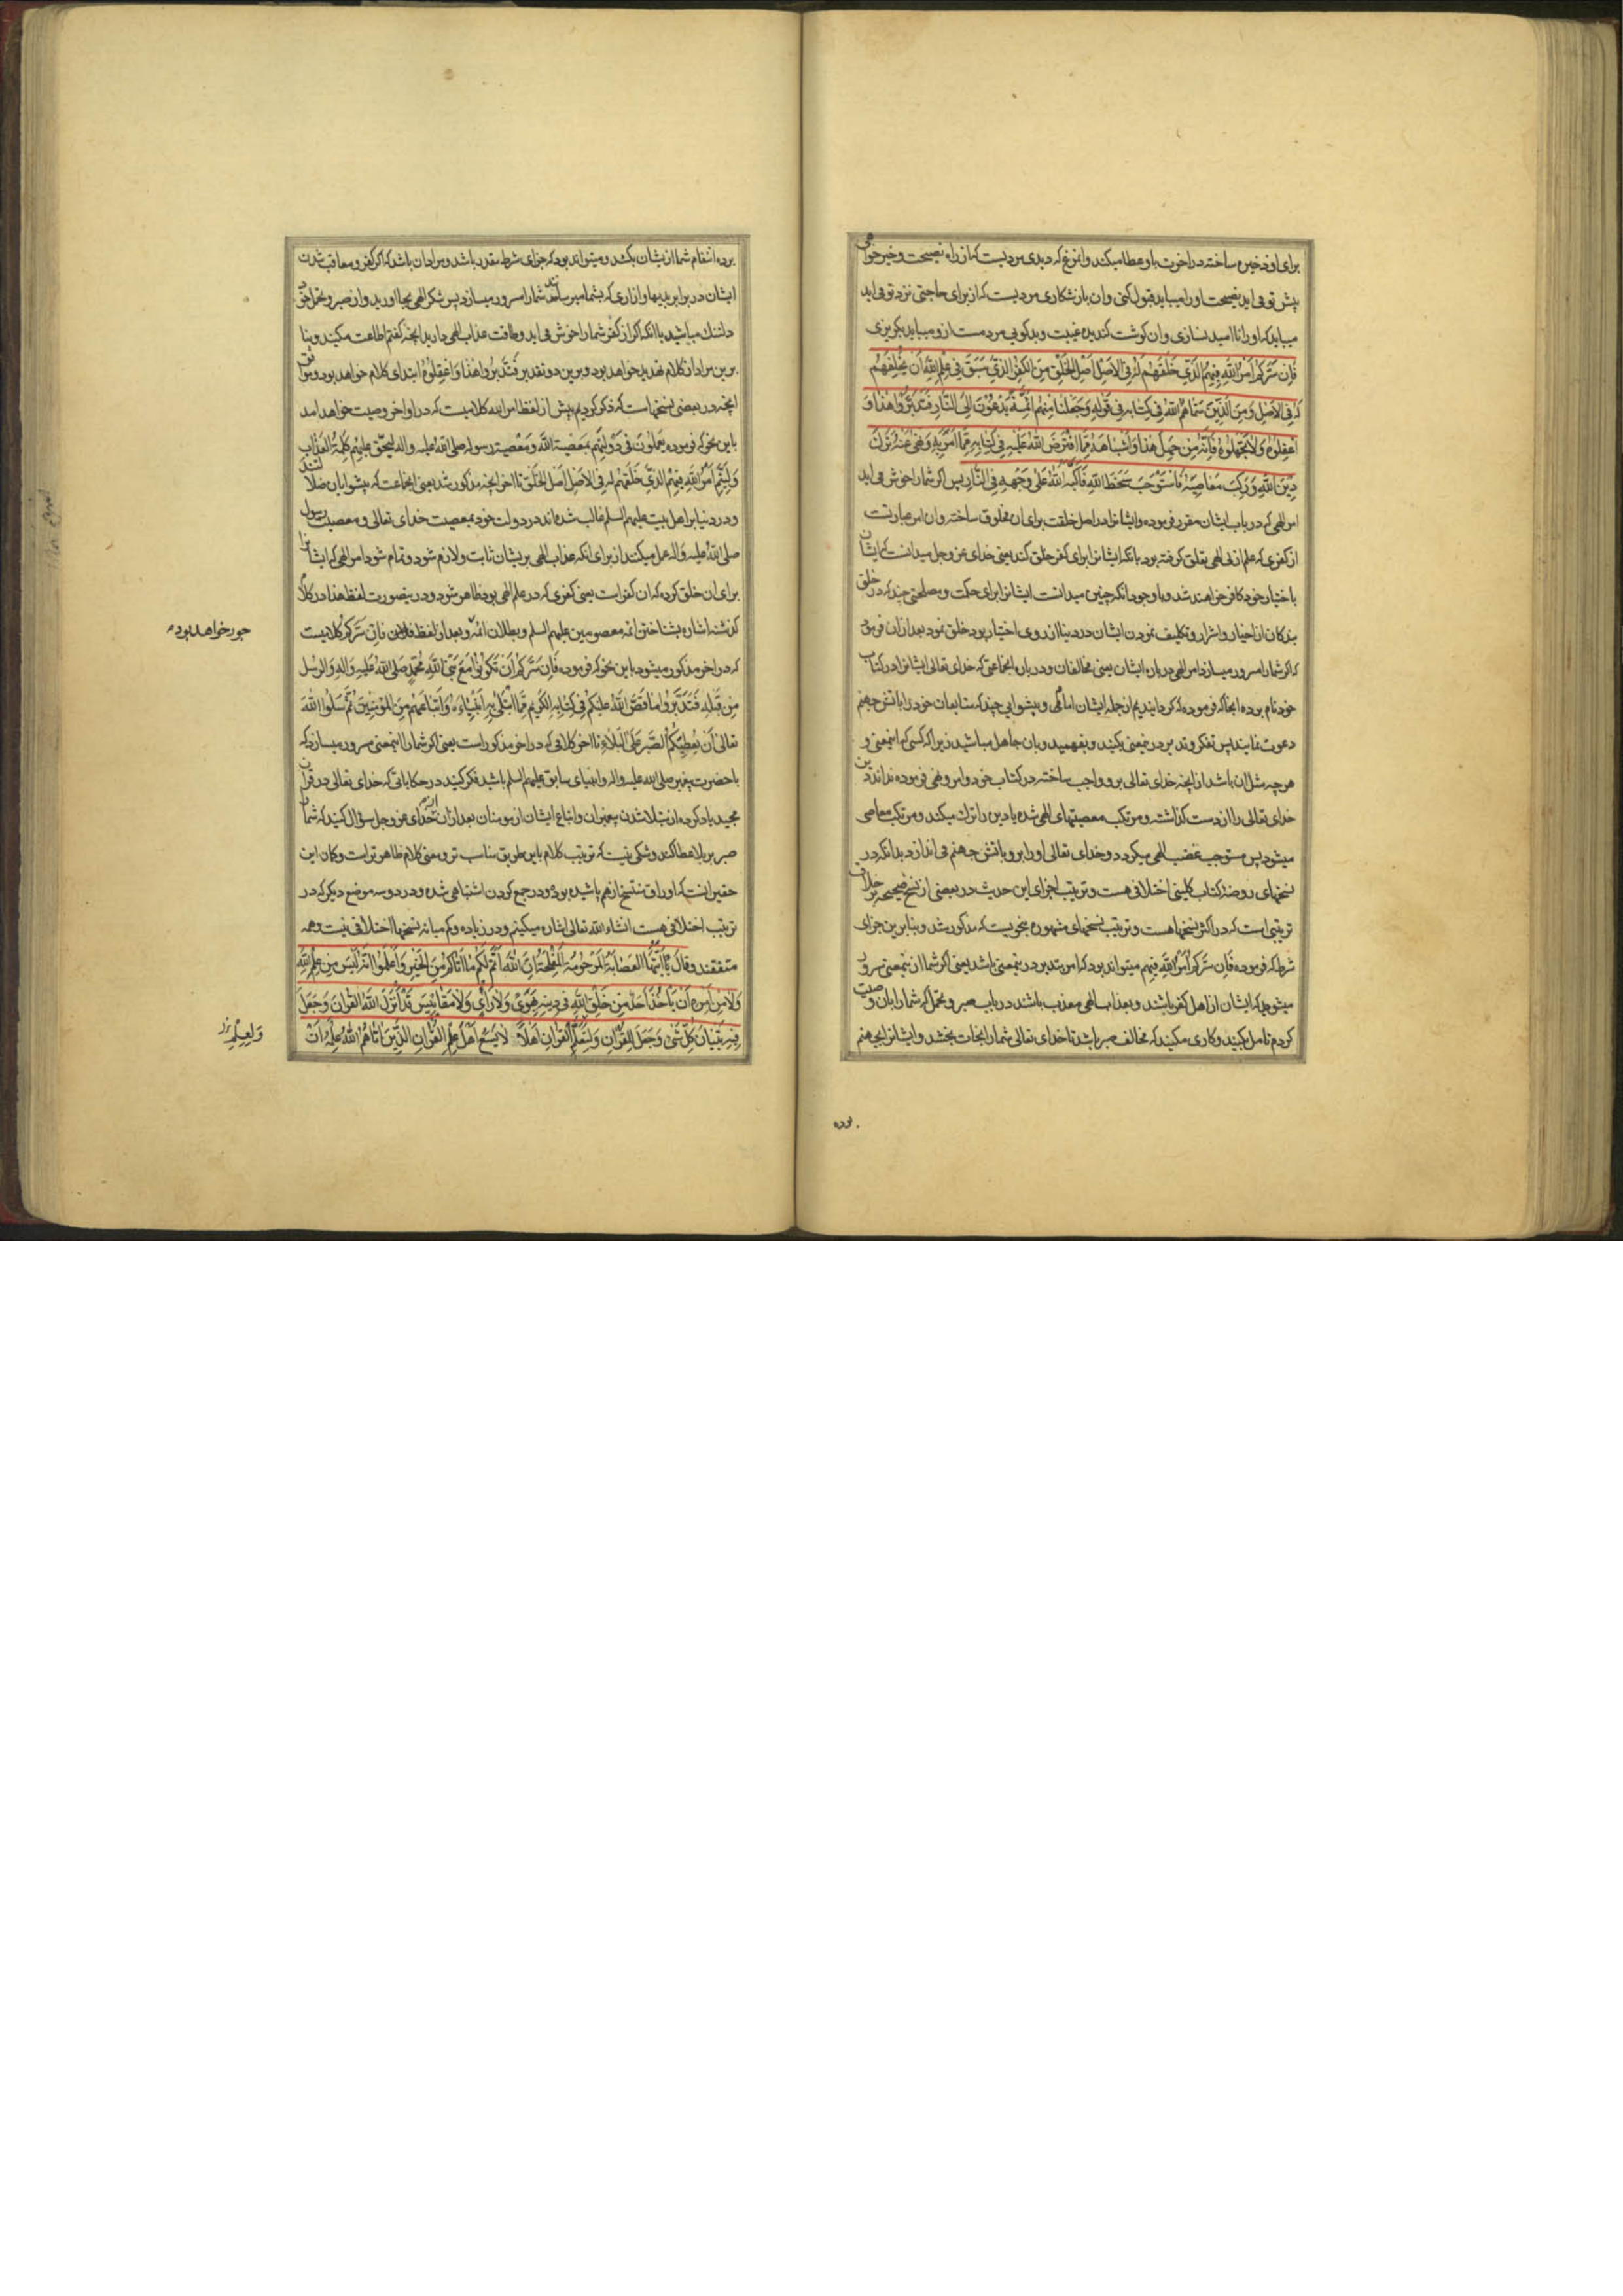 برای او ذخیره ساخته در آخرت باو عطا میکند و آنمرغ که دیدی مردیست که از راه نصیحت و خیرخواهی
پیش تو می اید بنصیحت او را میباید قبول کنی و ان باز شکاری مردیست که از برای حاجتی نزد تو می اید
میباید که او را ناامید نسازی و ان کوشت کندیده غیبت و بدکویی مردمست ازو میباید بکریزی
فَاِن سَرَّکُم اَمرُ اللهِ فِیهِمُ الَّذِی خَلَقَهُم لَهُ فِی الاَصلِ اَصلِ الخَلقِ مِنَ الکُفرِ الَّذِی سَبَقَ فِی عِلمِ اللهِ اَن یَخلُقَهُم
لَهُ فِی الاَصلِ وَمِنَ الَّذِینَ سَمّاهُمُ اللهُ فِی کِتابِهِ فِی قَولِهِ وَجَعَلنا مِنهُم اَئِمَّةً یَدعُونَ اِلَی النّارِ فَتَدَبَّرُوا هذا وَ
اعقِلُوهُ وَلا تَجهَلُوهُ فَاِنَّهُ مَن جَهِلَ هذا وَاَشباهَهُ مِمّا افتَرَضَ اللهُ عَلَیهِ فِی کِتابِهِ مِمّا اَمَرَ بِهِ وَنَهی عَنهُ تَرَکَ
دِینَ اللهِ وَرَکِبَ مَعاصِیَهُ فَاستَوجَبَ سَخَطَ اللهِ فَاَکَبَّهُ اللهُ عَلی وَجهِهِ فِی النّارِ پس اکر شما را خوش می اید
امر الهی که در باب ایشان مقرر فرموده و ایشانرا در اصل خلقت برای ان مخلوق ساخته و ان امر عبارتست
از کفری که علم ازلی الهی بتعلق کرفته بود بانکه ایشانرا برای کفر خلق کند یعنی خدای عز و جل میدانست که ایشان
باختیار خود کافر خواهند شد و باوجود انکه چنین میدانست ایشانرا برای حکمت و مصلحتی چند که در خلق
بندکان از اخیار و اشرار و تکلیف نمودن ایشان در دنیا از روی اختیار بود خلق نمود بعد ازان فرمود
که اکر شما را مسرور میسازد امر الهی درباره ایشان یعنی مخالفان و درباره انجماعتی که خدای تعالی ایشانرا در کتاب
خود نام برده انجا که فرموده که کردانیدیم از جمله ایشان امامان و پیشوایی چند که متابعان خود را باتش جهنم
دعوت نمایند پس تفکر و تدبر درینمعنی بکنید و بفهمید و بان جاهل مباشید زیرا که کسی که اینمعنی و
هرچه مثل ان باشد از انچه خدای تعالی برو واجب ساخته در کتاب خود و امر و نهی فرموده نداند دین
خدای تعالی را از دست کذاشته و مرتکب معصیتهای الهی شده یا دین را ترک میکند و مرتکب معاصی
میشود پس مستوجب غضب الهی میکردد و خدای تعالی او را برو باتش جهنم می اندازد بدانکه در
نسخهای روضهٔ کتاب کلینی اختلافی هست و ترتیب اجزای این حدیث در بعضی از نسخ صحیحه بر خلاف
ترتیبی است که در اکثر نسخها هست و ترتیب نسخهای مشهوره بنحویست که مذکور شد و بنابرین جزای
شرط که فرموده فَاِن سَرَّکُم اَمرُ اللهِ فِیهِم میتواند بود که امر بتدبر درینمعنی باشد یعنی اکر شما از اینمعنی مسرور
میشوید که ایشان از اهل کفر باشند و بعذاب الهی معذب باشند در باب صبر و تحمل که شما را بان وصیت
کردم تامل بکنید و کاری مکنید که مخالف صبر باشد تا خدای تعالی شما را نجات بخشد و ایشانرا بجهنم
برده
برده انتقام شما از ایشان بکشد و میتواند بود که جزای شرط مقدر باشد و مراد ان باشد که اکر کفر و معاقب شدن
ایشان در برابر بدیها و ازاری که بشما میرسانند شما را مسرور میسازد پس شکر الهی بجا اورید و از صبر و تحمل خود
دلتنک مباشید یا انکه اکر از کفر شما را خوش می اید و طاقت عذاب الهی دارید انچه کفتم اطاعت مکنید و بنا
برین مراد از کلام تهدید خواهد بود و برین دو تقدیر فَتَدَبَّرُوا هذا وَاعقِلُوهُ ابتدای کلام خواهد بود و موافق
انچه در بعضی نسخها است که ذکر کردیم پیش از لفظ امر الله کلامیست که در اواخر وصیت خواهد امد
باین نحو که فرموده یَعمَلُونَ فِی دَولَتِهِم بِمَعصِیَةِ اللهِ وَمَعصِیَةِ رَسُولِهِ صلی الله علیه واله لِیَحِقَّ عَلَیهِم کَلِمَةُ العَذابِ
وَلِیَتِمَّ اَمرُ اللهِ فِیهِمُ الَّذِی خَلَقَهُم لَهُ فِی الاَصلِ اَصلِ الخَلقِ تا اخر انچه مذکور شد یعنی انجماعت که پیشوایان ضلالتند
و در دنیا بر اهل بیت علیهم السلم غالب شده اند در دولت خود بمعصیت خدای تعالی و معصیت رسول
صلی الله علیه واله عمل میکنند از برای انکه عذاب الهی بر ایشان ثابت و لازم شود و تمام شود امر الهی که ایشانرا
برای ان خلق کرده که ان کفر است یعنی کفری که در علم الهی بود ظاهر شود و درینصورت لفظ هذا در کلام
کذشته اشاره بشناختن ائمه معصومین علیهم السلم و بطلان ائمه و بعد از لفظ فَاِن سَرَّکُم کلامیست
جور خواهد بود
که در اخر مذکور میشود باین نحو که فرموده فَاِن سَرَّکُم اَن تَکُونُوا مَعَ نَبِیِّ اللهِ مُحَمَّدٍ صَلَّی اللهُ عَلَیهِ وَالِهِ وَالرُّسُلِ
مِن قَبلِهِ فَتَدَبَّرُوا ما قَصَّ اللهُ عَلَیکُم فِی کِتابِهِ الکَرِیمِ مِمَّا ابتَلی بِهِ اَنبِیاءَهُ وَاَتباعَهُم مِنَ المُؤمِنِینَ ثُمَّ سَلُوا اللهَ
تعالی اَن یُعطِیَکُمُ الصَّبرَ عَلَی البَلاءِ تا اخر کلامی که در اخر مذکور است یعنی اکر شما را اینمعنی مسرور میسازد که
با حضرت پیغمبر صلی الله علیه واله و انبیای سابق علیهم السلم باشید فکر کنید در حکایاتی که خدای تعالی در قران
مجید یاد کرده از مبتلا شدن پیغمبران و اتباع ایشان از مومنان بعد ازان از خدای عز و جل سؤال کنید که شما را
صبر بر بلا عطا کند و شکی نیست که ترتیب کلام باین طریق مناسب تر و معنی کلام ظاهر تر است و کمان این
حقیر انست که اوراق منتسخ از هم پاشیده بوده و در جمع کردن اشتباهی شده و در دو سه موضع دیکر که در
ترتیب اختلافی هست انشاء الله تعالی اشاره میکنیم و در زیاده و کم میانه نسخها اختلافی نیست و همه
متفقند وَقالَ یا اَیَّتُهَا العِصابَةُ المَرحُومَةُ المُفلِحَةُ اِنَّ اللهَ اَتَمَّ لَکُم ما اَتاکُم مِنَ الخَیرِ وَاعلَمُوا اَنَّهُ لَیسَ مِن عِلمِ اللهِ
وَلا مِن اَمرِهِ اَن یَأخُذَ اَحَدٌ مِن خَلقِ اللهِ فِی دِینِهِ بِهَویً وَلا رَأیٍ وَلا مَقایِیسَ قَد اَنزَلَ اللهُ القُرانَ وَجَعَلَ
فِیهِ تِبیانَ کُلِّ شَیءٍ وَجَعَلَ لِلقُرانِ وَلِتَعَلُّمِ القُرانِ اَهلاً لا یَسَعُ اَهلَ عِلمِ القُرانِ الَّذِینَ اتاهُمُ اللهُ عِلمَهُ اَن
وَلِعِلمِ